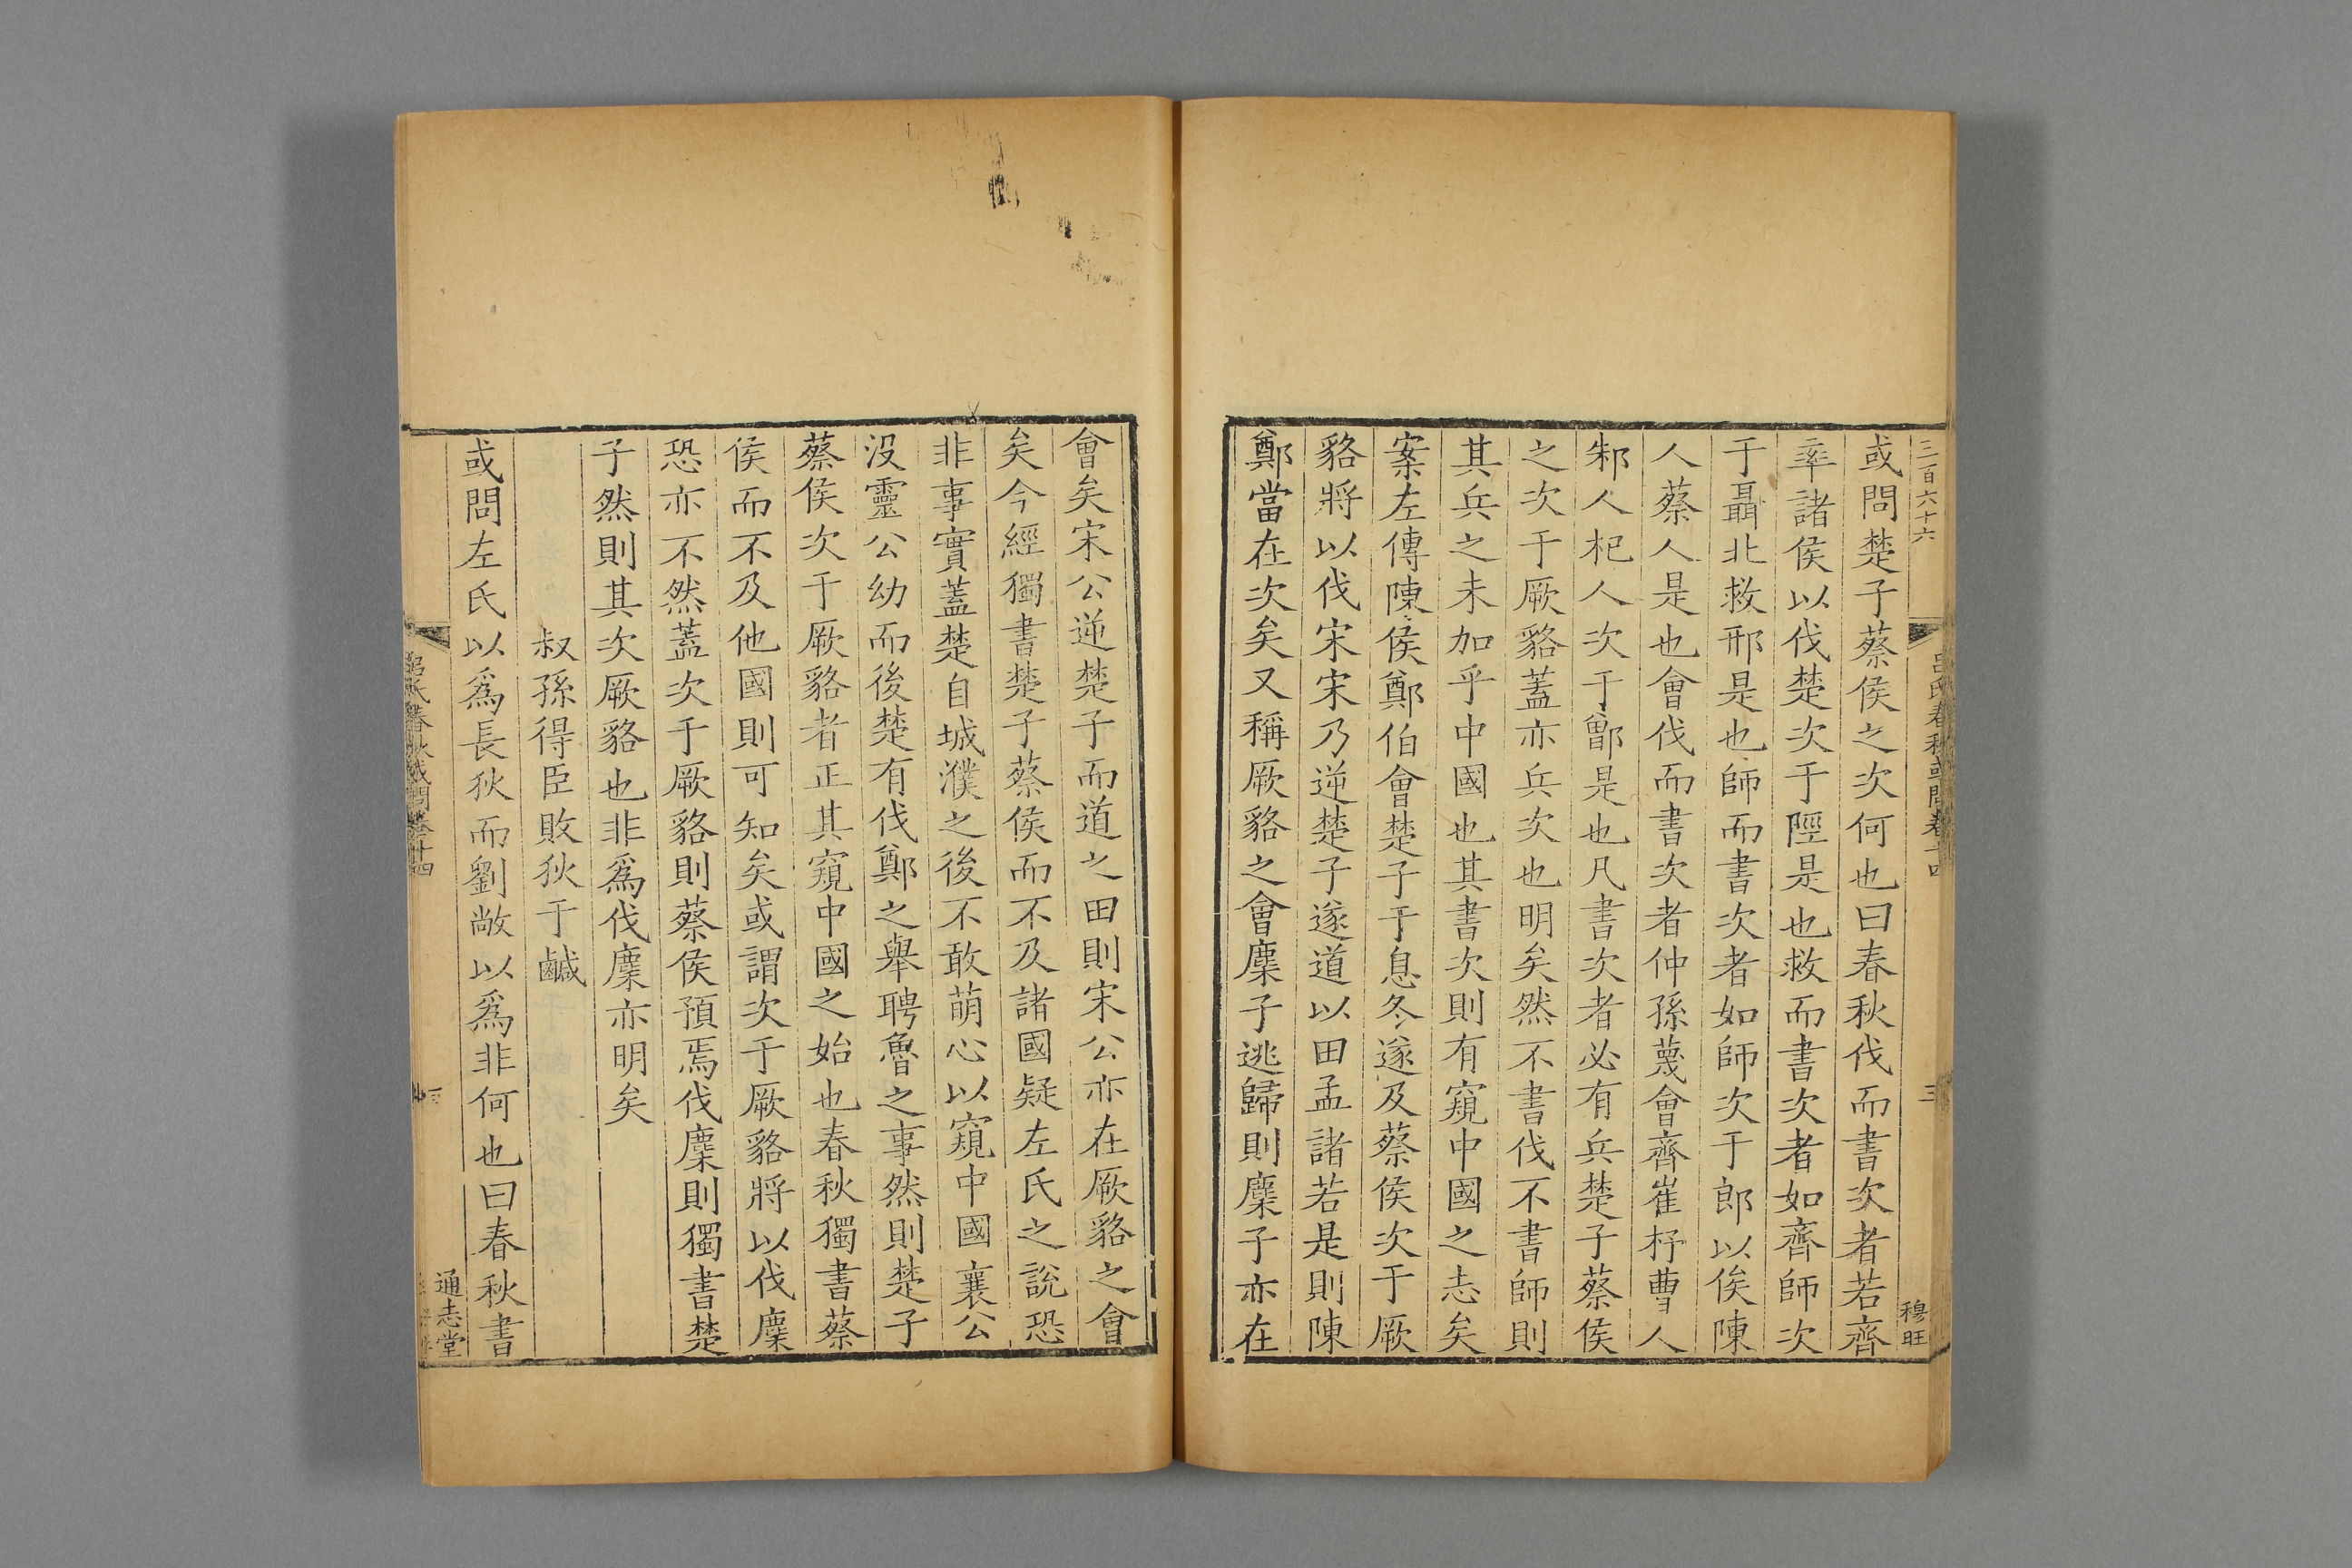 三百六十六
呂氏春秋或問卷十四
三
穆旺
或問楚子蔡侯之次何也曰春秋伐而書次者若齊
率諸侯以伐楚次于陘是也救而書次者如齊師次
于聶北救邢是也師而書次者如師次于郎以俟陳
人蔡人是也會伐而書次者仲孫蔑會齊崔杼曹人
邾人杞人次于鄫是也凡書次者必有兵楚子蔡侯
之次于厥貉蓋亦兵次也明矣然不書伐不書師則
其兵之未加乎中國也其書次則有窺中國之志矣
案左傳陳侯鄭伯會楚子于息冬遂及蔡侯次于厥
貉將以伐宋宋乃逆楚子遂道以田孟諸若是則陳
鄭當在次矣又稱厥貉之會麇子逃歸則麇子亦在
會矣宋公逆楚子而道之田則宋公亦在厥貉之會
矣今經獨書楚子蔡侯而不及諸國疑左氏之說恐
非事實蓋楚自城濮之後不敢萌心以窺中國襄公
沒靈公幼而後楚有伐鄭之舉聘魯之事然則楚子
蔡侯次于厥貉者正其窺中國之始也春秋獨書蔡
侯而不及他國則可知矣或謂次于厥貉將以伐麇
恐亦不然蓋次于厥貉則蔡侯預焉伐麇則獨書楚
子然則其次厥貉也非爲伐麇亦明矣
叔孫得臣敗狄于鹹
或問左氏以爲長狄而劉敞以爲非何也曰春秋書
呂氏春秋或問卷十四
通志堂